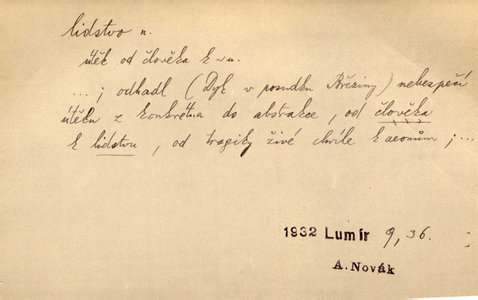 lidstvo n.
útěk od člověka k l-u.
...; odhadl (Dyk v posudku Březiny) nebezpečí
útěku z konkrétna do abstrakce, od člověka
k lidstvu, od tragiky živé chvíle k aeonům; ...
1932 Lumír 9, 36.
A. Novák